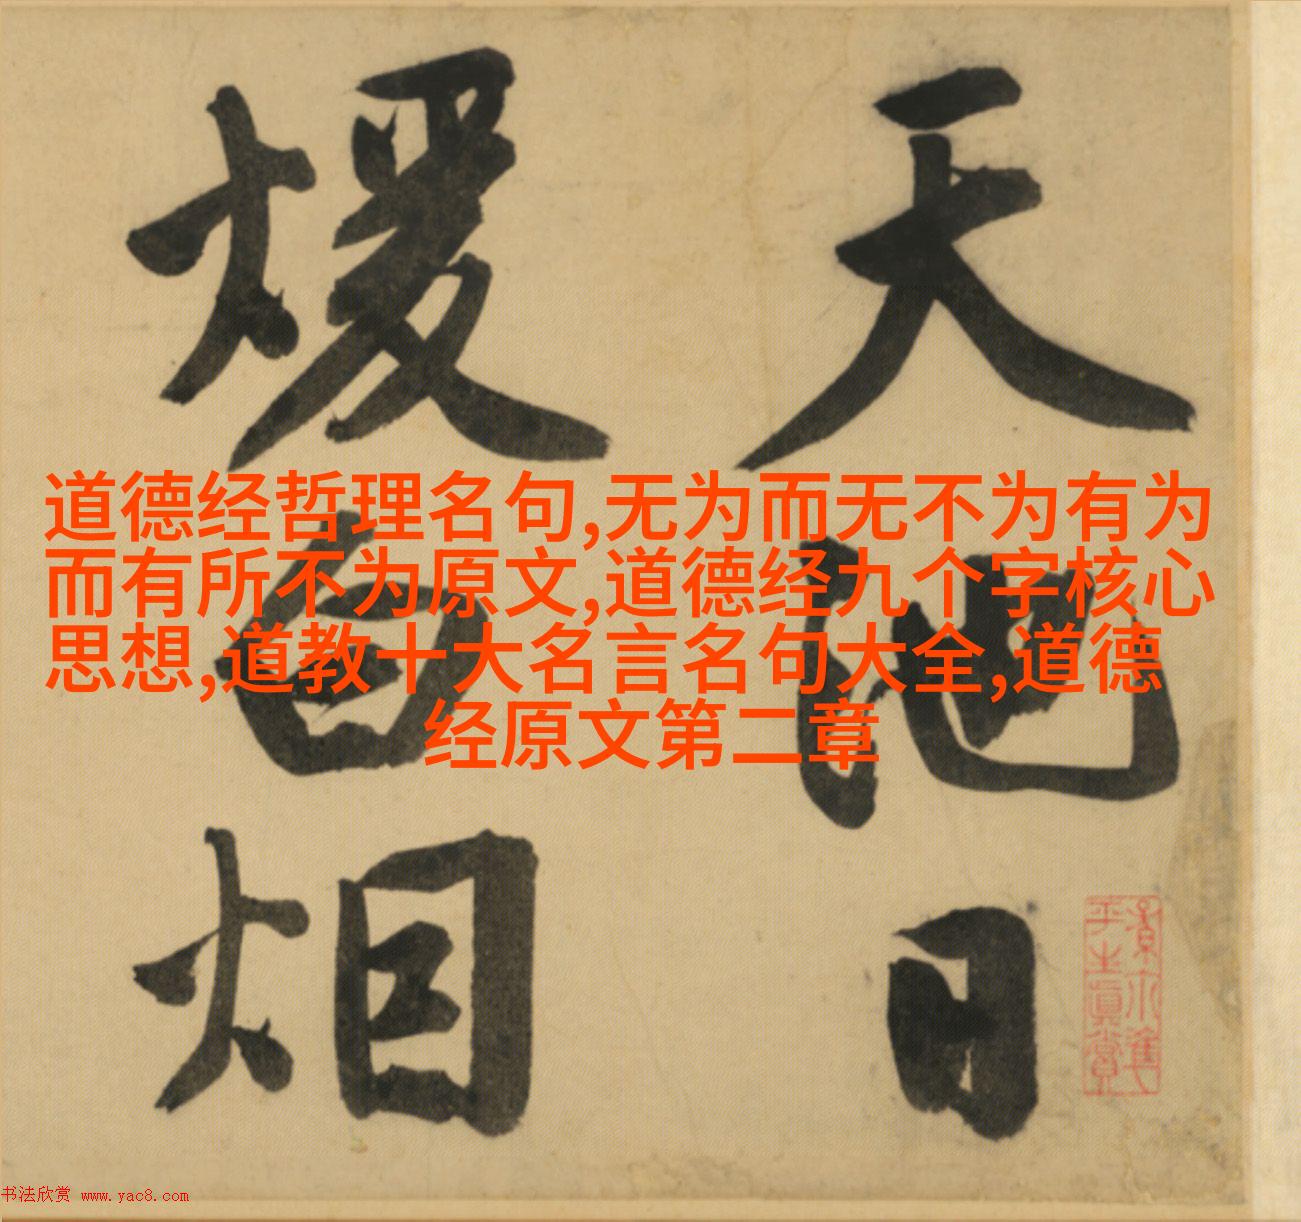 天池日
煖白烟
道德经哲理名句,无为而无不为有为
而有所不为原文,道德经九个字核心
思想,道教十大名言名句大全,道德
经原文第二章
平生真賞
书法欣赏 www.yac8.com